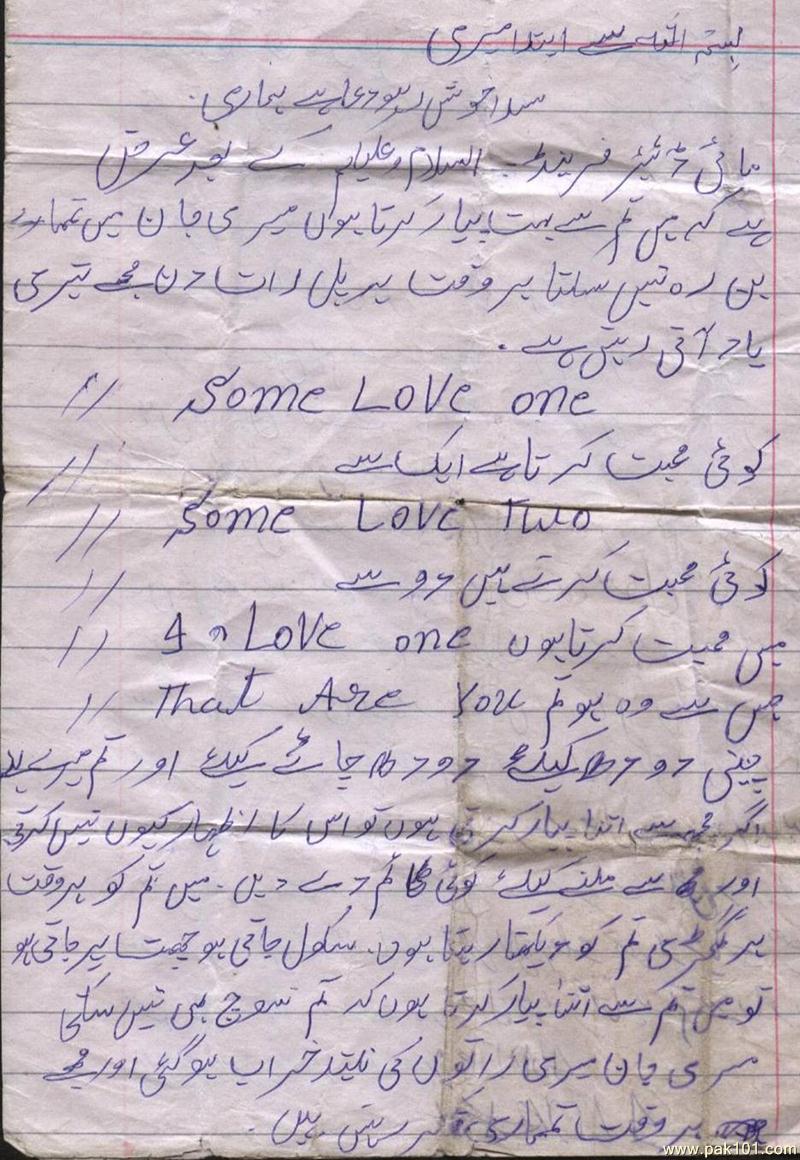 بسم اللہ سے ابتدا میری
سدا خوش رہو دعا ہے ہماری.
مائی ڈئیر فرینڈ۔ السلام وعلیکم کے بعد عرض
ہے کہ میں تم سے بہت پیار کرتا ہوں میری جان میں تمہارے
بن رہ نہیں سکتا ہر وقت ہر پل رات دن مجھے تیری
یاد آتی رہتی ہے.
Some Love one //
کوئی محبت کرتا ہے ایک سے //
Some Love Two //
کوئی محبت کرتے ہیں دو سے //
میں محبت کرتا ہوں I Love one //
جس سے وہ ہو تم That Are You //
چینی دودھ کیلئے دودھ چائے کیلئے اور تم میرے
اگر مجھ سے اتنا پیار کرتی ہوں تو اس کا اظہار کیوں نہیں کرتی
اور مجھ سے ملنے کیلئے کوئی ٹائم دے دیں. میں تم کو ہر وقت
ہر گھڑی تم کو دیکھتا رہتا ہوں. سکول جاتی ہو چھت پر جاتی ہو
تو میں تم سے اتنا پیار کرتا ہوں کہ تم سوچ بھی نہیں سکتی
میری جان میری راتوں کی نیند خراب ہو گئی اور مجھے
ہر وقت تمہاری رہتی ہیں.
www.pak101.com